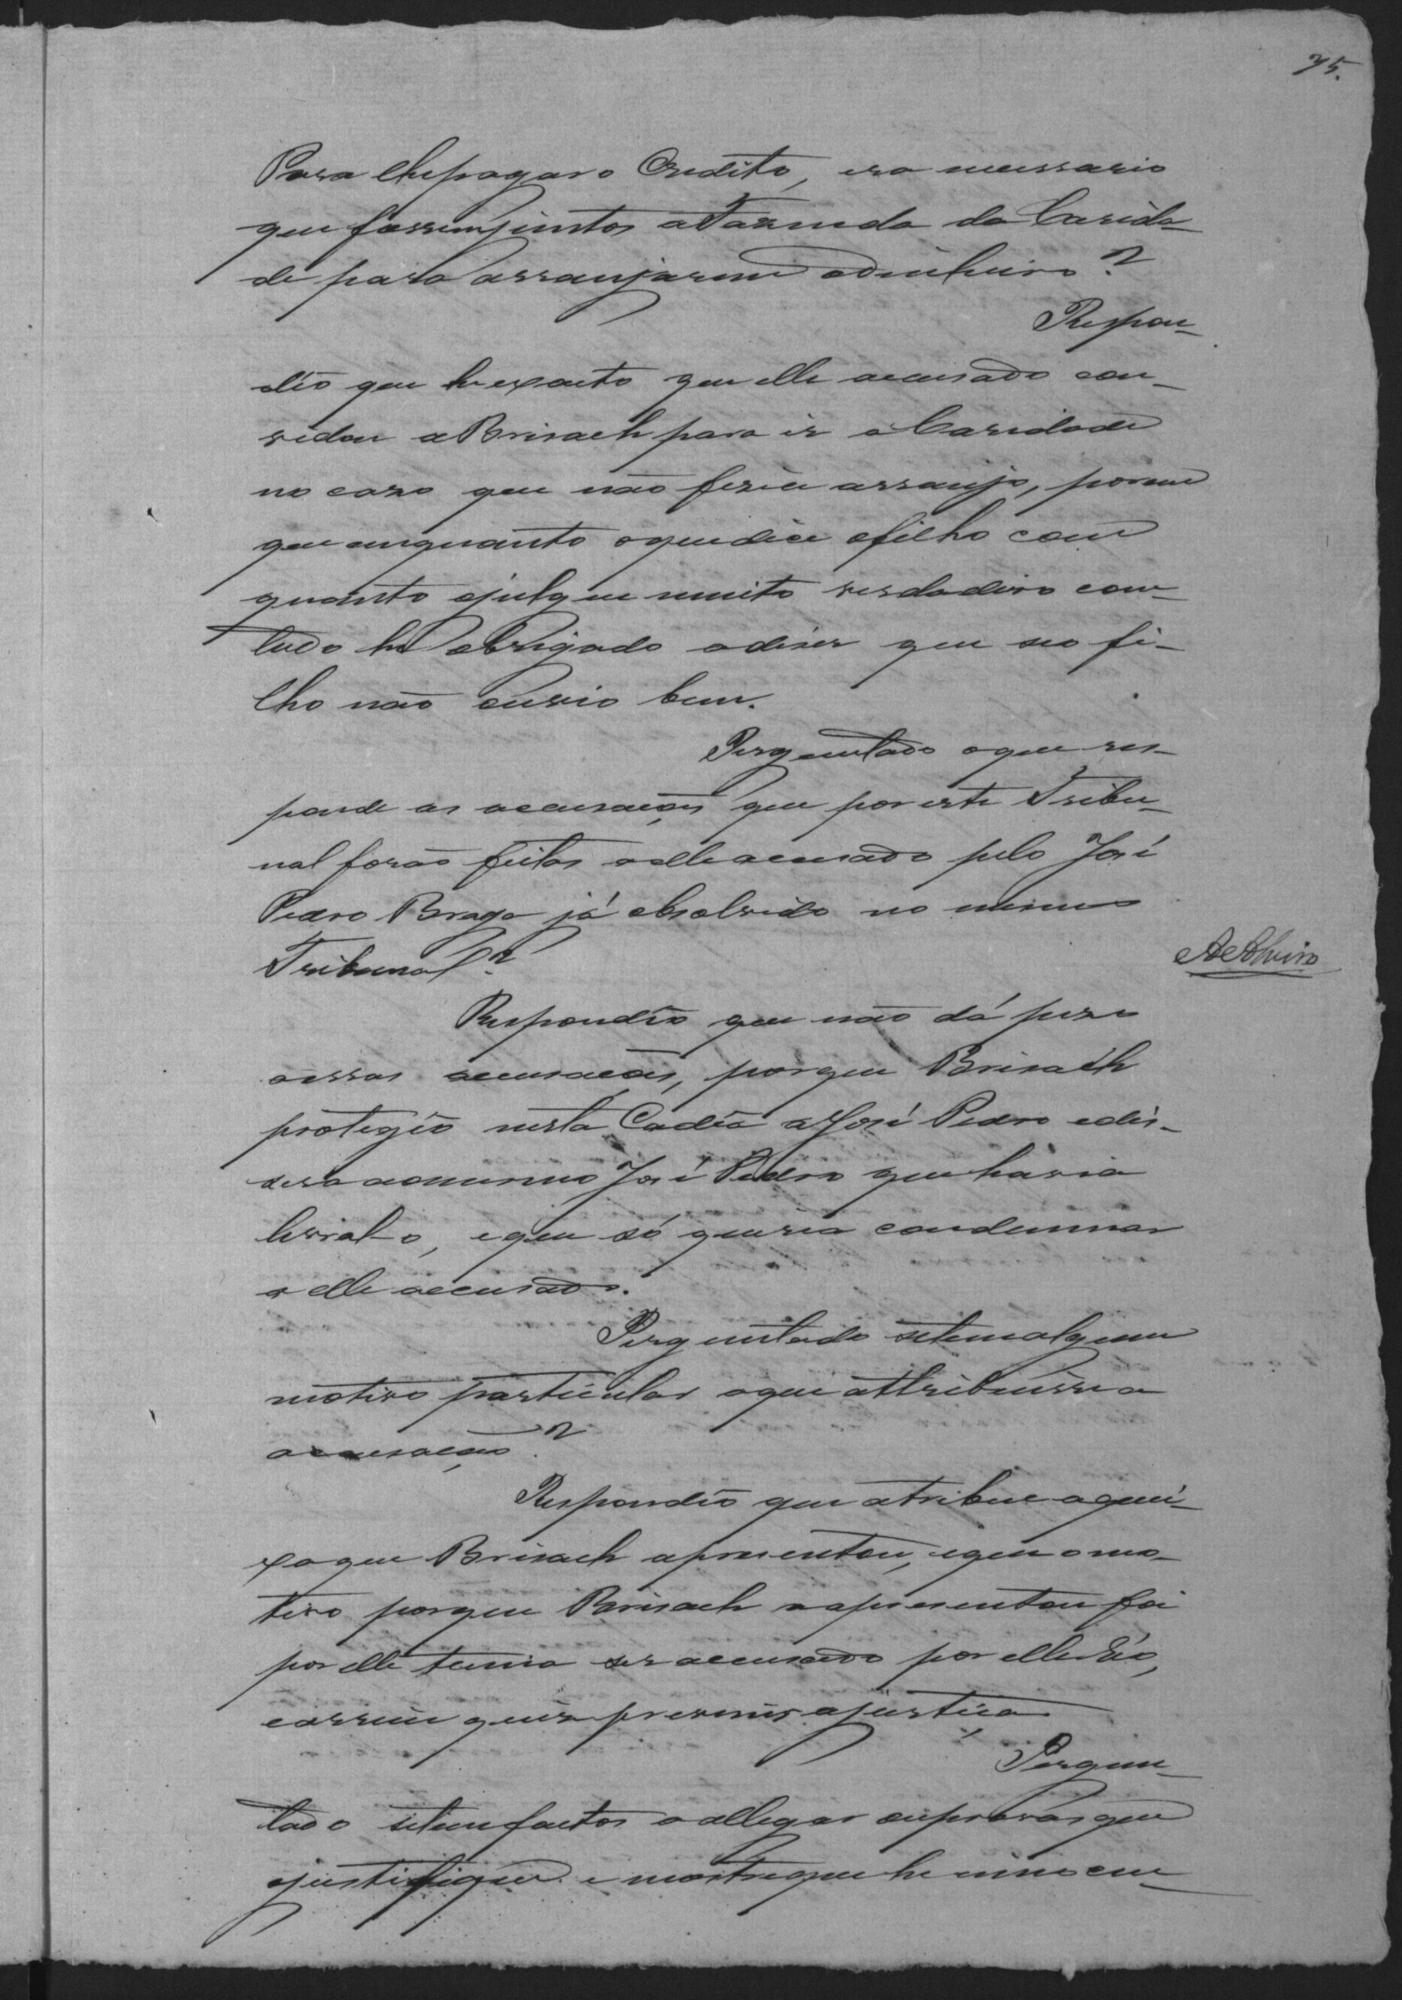 75.
Para lhe pagar o Credito, era necessario
que fossem juntos a Fazenda da Carida-
de para arranjarem o dinheiro?
Respon-
dêo que he exacto que elle accusado con-
vidou a Brisach para ir a Caridade
no cazo que não fizece arranjo, porem
que emquanto o que dice o filho com
quanto o julgue muito verdadeiro com-
tudo he obrigado a diser que seo fi-
lho não ouvio bem.
Perguntado o que res-
ponde as accusações que por este Tribu-
nal forão feitas a elle accusado pelo José
Pedro Braga já absolvido no mesmo
Tribunal?
Respondêo que não dá pezo
a essas accusações, porque Brisach
protegêo nesta Cadêa a José Pedro e dis-
sera ao mesmo José Pedro que havia
livral-o, e que só queria condemnar
a elle accusado.
Perguntado se tem algum
motivo particular a que attribuisse a
accusação?
Respondêo que atribue a quei-
xa que Brisach apresentou, e que o mo-
tivo porque Brisach a apresentou foi
por elle temia ser accusado por elle Réo,
e assim quis prevenir a justiça
Pergun-
tado se tem factos a allegar ou provas que
o justifiquem e mostre que he innocen-